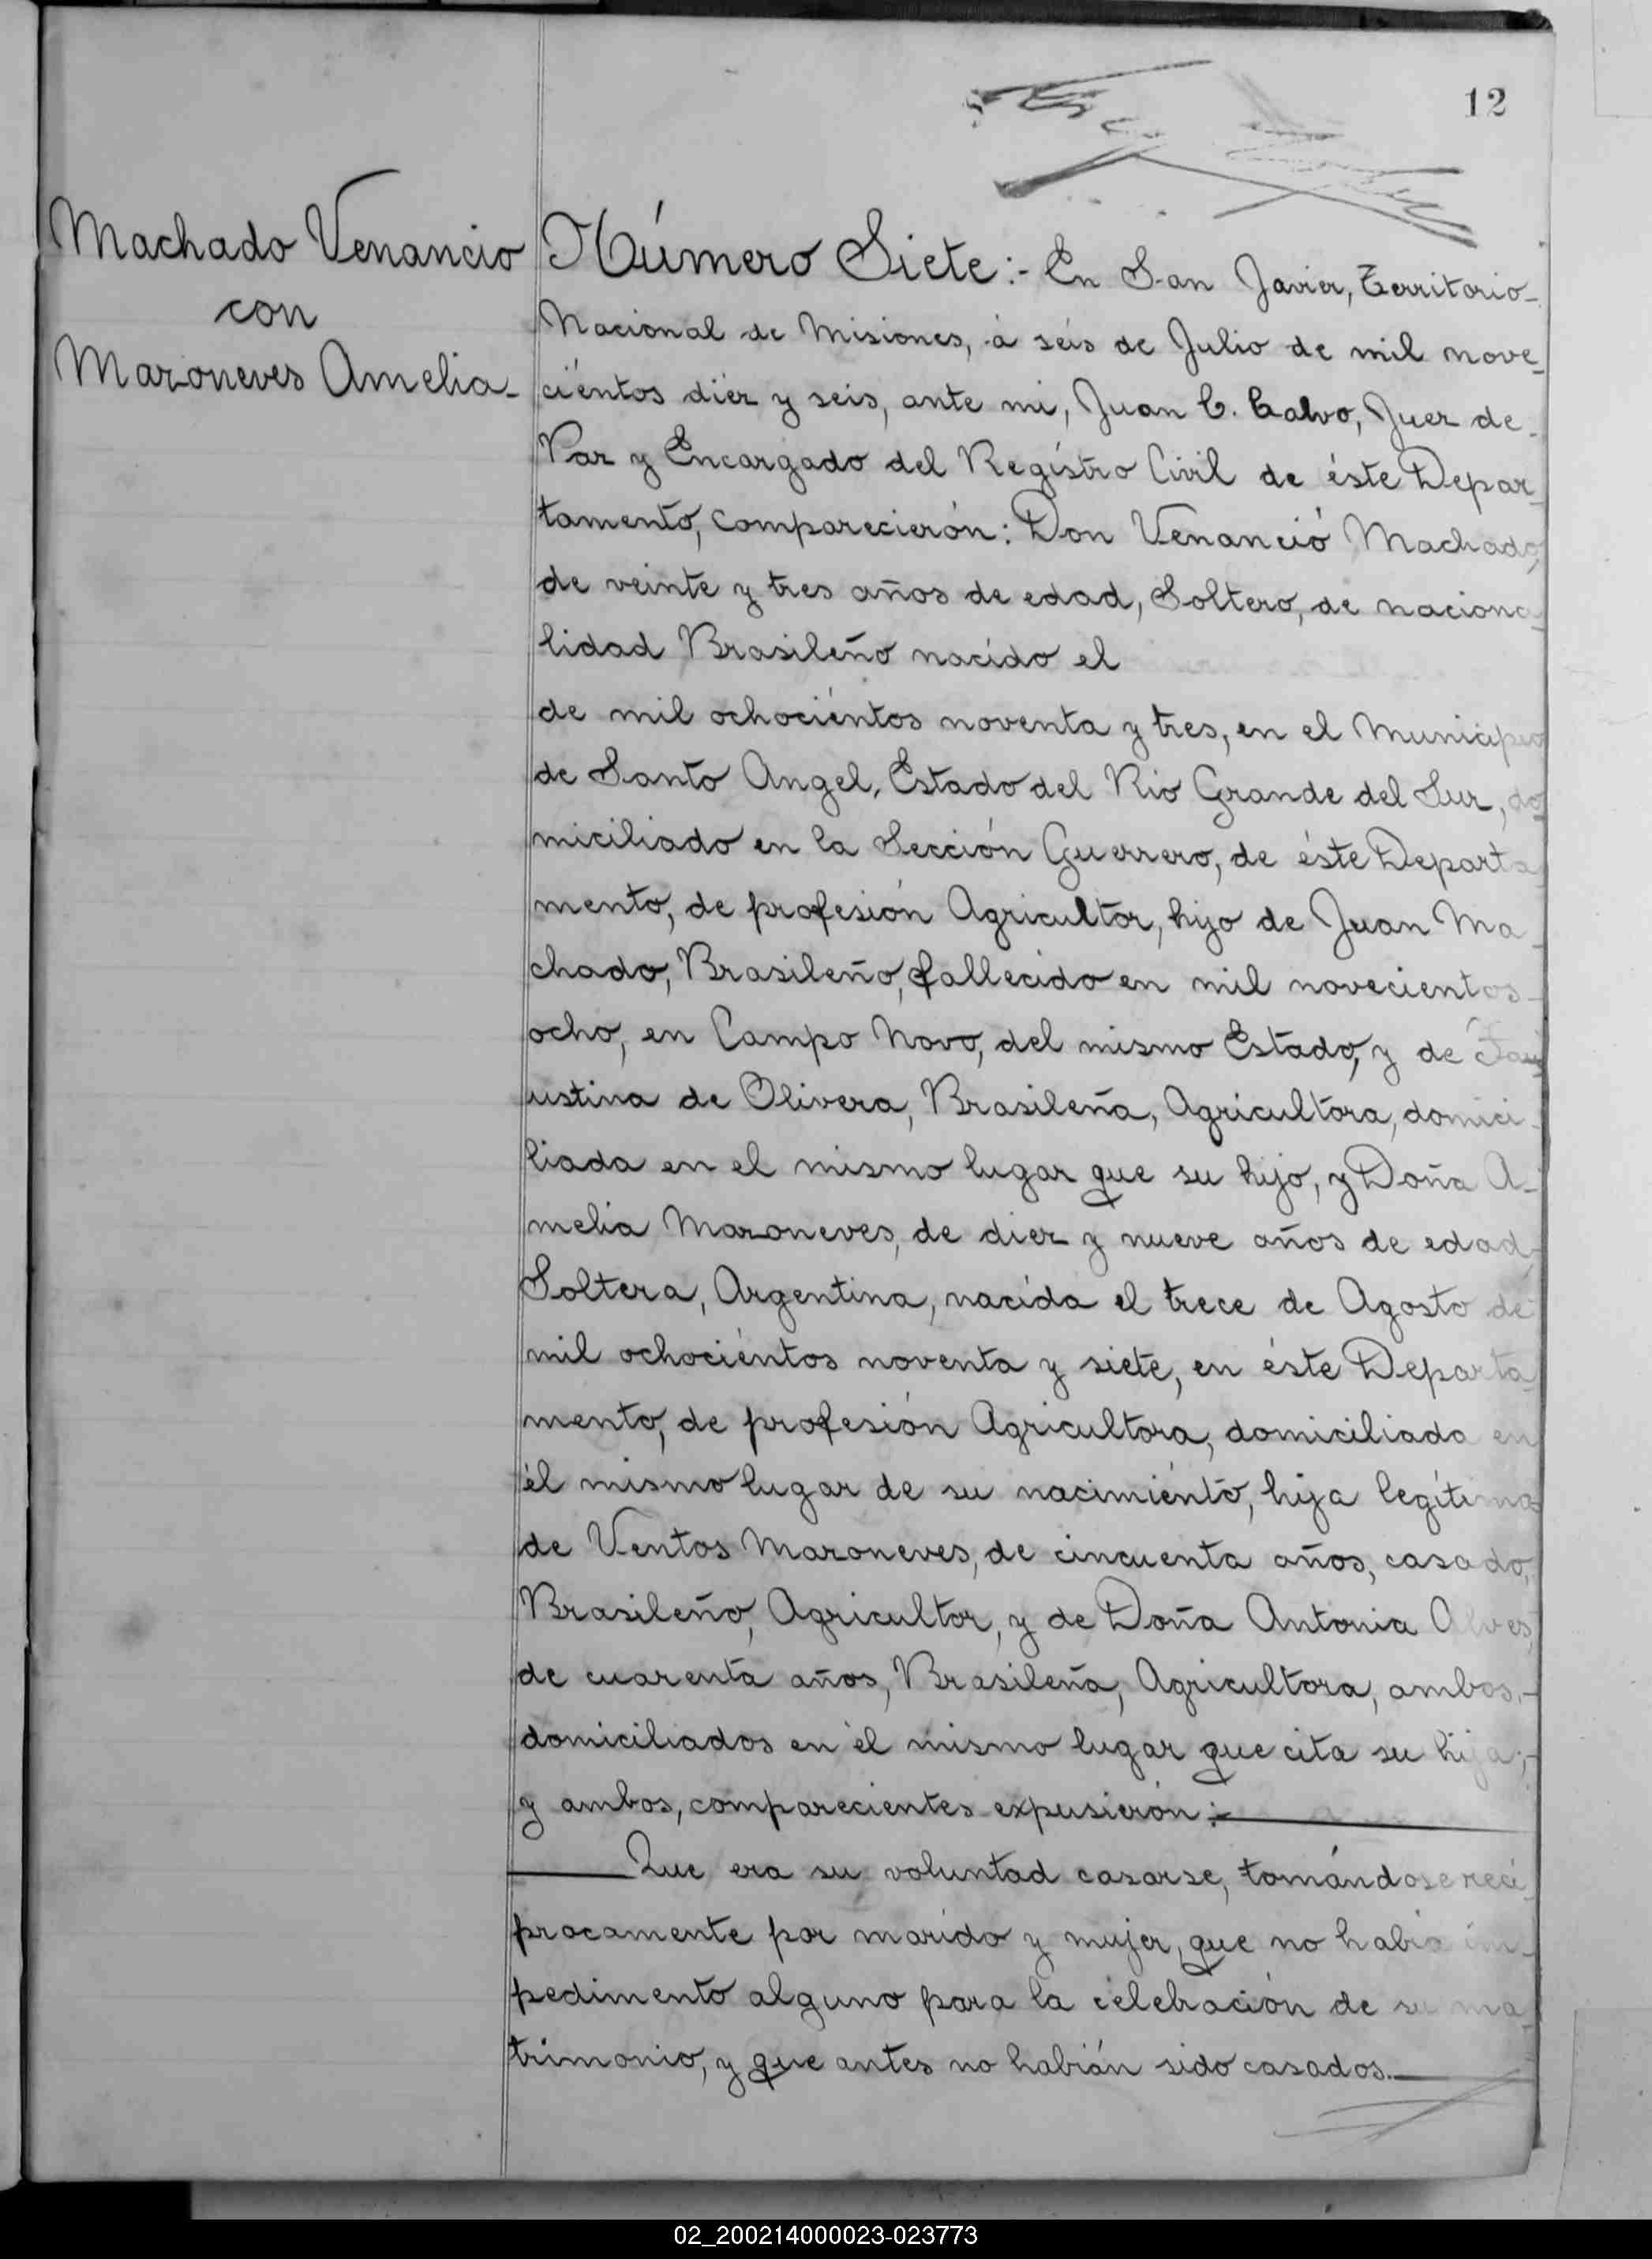 12
Machado Venancio
con
Mazoneves Amelia-
Número Siete:- En San Javier, Territorio-
Nacional de Misiones, á seis de Julio de mil nove-
ciéntos diéz y seis, ante mi, Juan C. Calvo, Juez de-
Paz y Encargado del Regístro Civil de éste Depar-
tamentó, comparecierón: Don Venanció Machado,
de veinte y tres años de edad, Soltero, de naciona-
lidad Brasileño nacído el
de mil ochociéntos noventa y tres, en el Municipio
de Santo Angel, Estado del Rio Grande del Sur, do-
miciliado en la Sección Guerrero, de éste Departa-
mento, de profesión Agricultor, hijo de Juan Ma-
chado, Brasileño, fallecido en mil novecientos-
ocho, en Campo Novo, del mismo Estado, y de Fau-
ustina de Olivera, Brasileña, Agricultora, domici-
liada en el mismo lugar que su hijo, y Doña A-
melia Mazoneves, de diez y nueve años de edad,
Soltera, Argentina, nacída el trece de Agosto de
mil ochociéntos noventa y siete, en éste Departa-
mentó, de profesión Agricultora, domiciliada en
él mismo lugar de su nacimiéntó, hija legítima
de Ventos Mazoneves, de cincuenta años, casado,
Brasileño, Agricultor, y de Doña Antonia Alves,
de cuarenta años, Brasileña, Agricultora, ambos,-
domiciliados en él mismo lugar que cita su hija;-
y ambos, comparecientes expusierón:-
Que era su voluntad casarse, tomándose recí-
procamente por marido y mujer, que no había im-
pedimento alguno para la célebración de su ma-
trimonio, y que antes no habián sido casados.
02_200214000023-023773